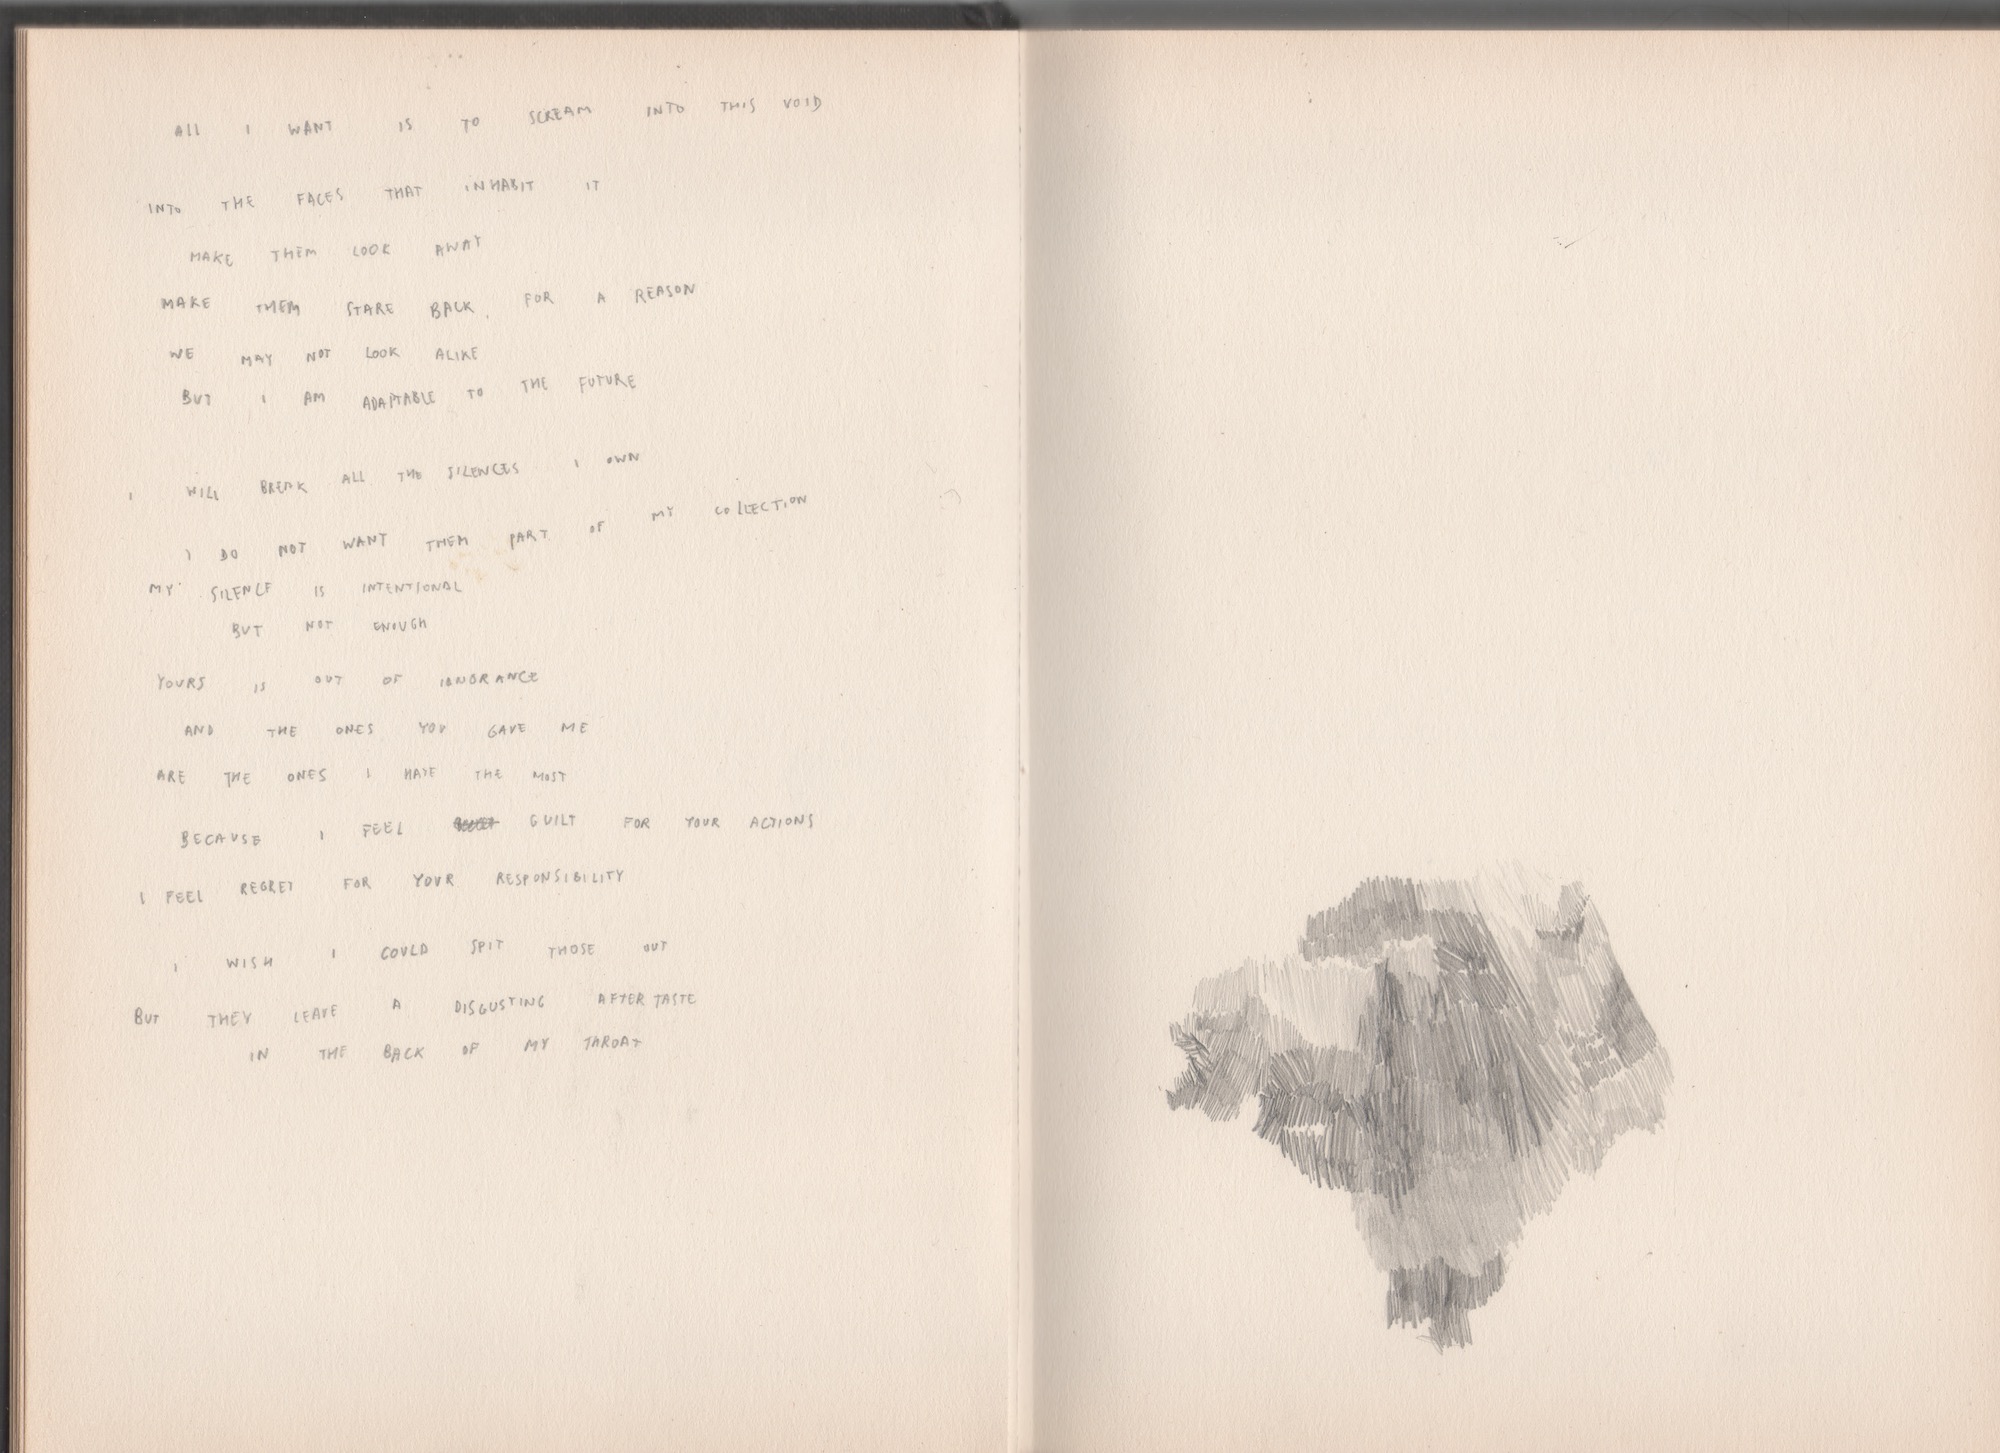 ALL I WANT IS TO SCREAM INTO THIS VOID
INTO THE FACES THAT INHABIT IT
MAKE THEM LOOK AWAY
MAKE THEM STARE BACK, FOR A REASON
WE MAY NOT LOOK ALIKE
BUT I AM ADAPTABLE TO THE FUTURE
I WILL BREAK ALL THE SILENCES I OWN
I DO NOT WANT THEM PART OF MY COLLECTION
MY SILENCE IS INTENTIONAL
BUT NOT ENOUGH
YOURS IS OUT OF IGNORANCE
AND THE ONES YOU GAVE ME
ARE THE ONES I HATE THE MOST
BECAUSE I FEEL GUILT FOR YOUR ACTIONS
I FEEL REGRET FOR YOUR RESPONSIBILITY
I WISH I COULD SPIT THOSE OUT
BUT THEY LEAVE A DISGUSTING AFTERTASTE
IN THE BACK OF MY THROAT